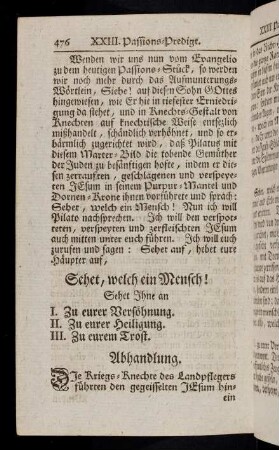 476 XXIII. Passions-Predigt.
Wenden wir uns nun vom Evangelio
zu dem heutigen Passions-Stück, so werden
wir noch mehr durch das Aufmunterungs-
Wörtlein, Siehe! auf diesen Sohn GOttes
hingewiesen, wie Er hie in tiefester Erniedri-
gung da stehet, und in Knechts-Gestalt von
Knechten auf knechtische Weise entsezlich
mißhandelt, schändlich verhöhnet, und so er-
bärmlich zugerichtet wird, daß Pilatus mit
diesem Marter-Bild die tobende Gemüther
der Juden zu besänftigen hofte, indem er die-
sen zerrauften, geschlagenen und verspeye-
ten JEsum in seinem Purpur-Mantel und
Dornen-Krone ihnen vorführete und sprach:
Sehet, welch ein Mensch! Nun ich will
Pilato nachsprechen. Ich will den verspot-
teten, verspeyten und zerfleischten JEsum
auch mitten unter euch führen. Ich will euch
zurufen und sagen: Sehet auf, hebet eure
Häupter auf,
Sehet, welch ein Mensch!
Sehet Ihne an
I. Zu eurer Versöhnung.
II. Zu eurer Heiligung.
III. Zu eurem Trost.
Abhandlung.
Die Kriegs-Knechte des Landpflegers
führten den gegeisselten JEsum hin-
ein